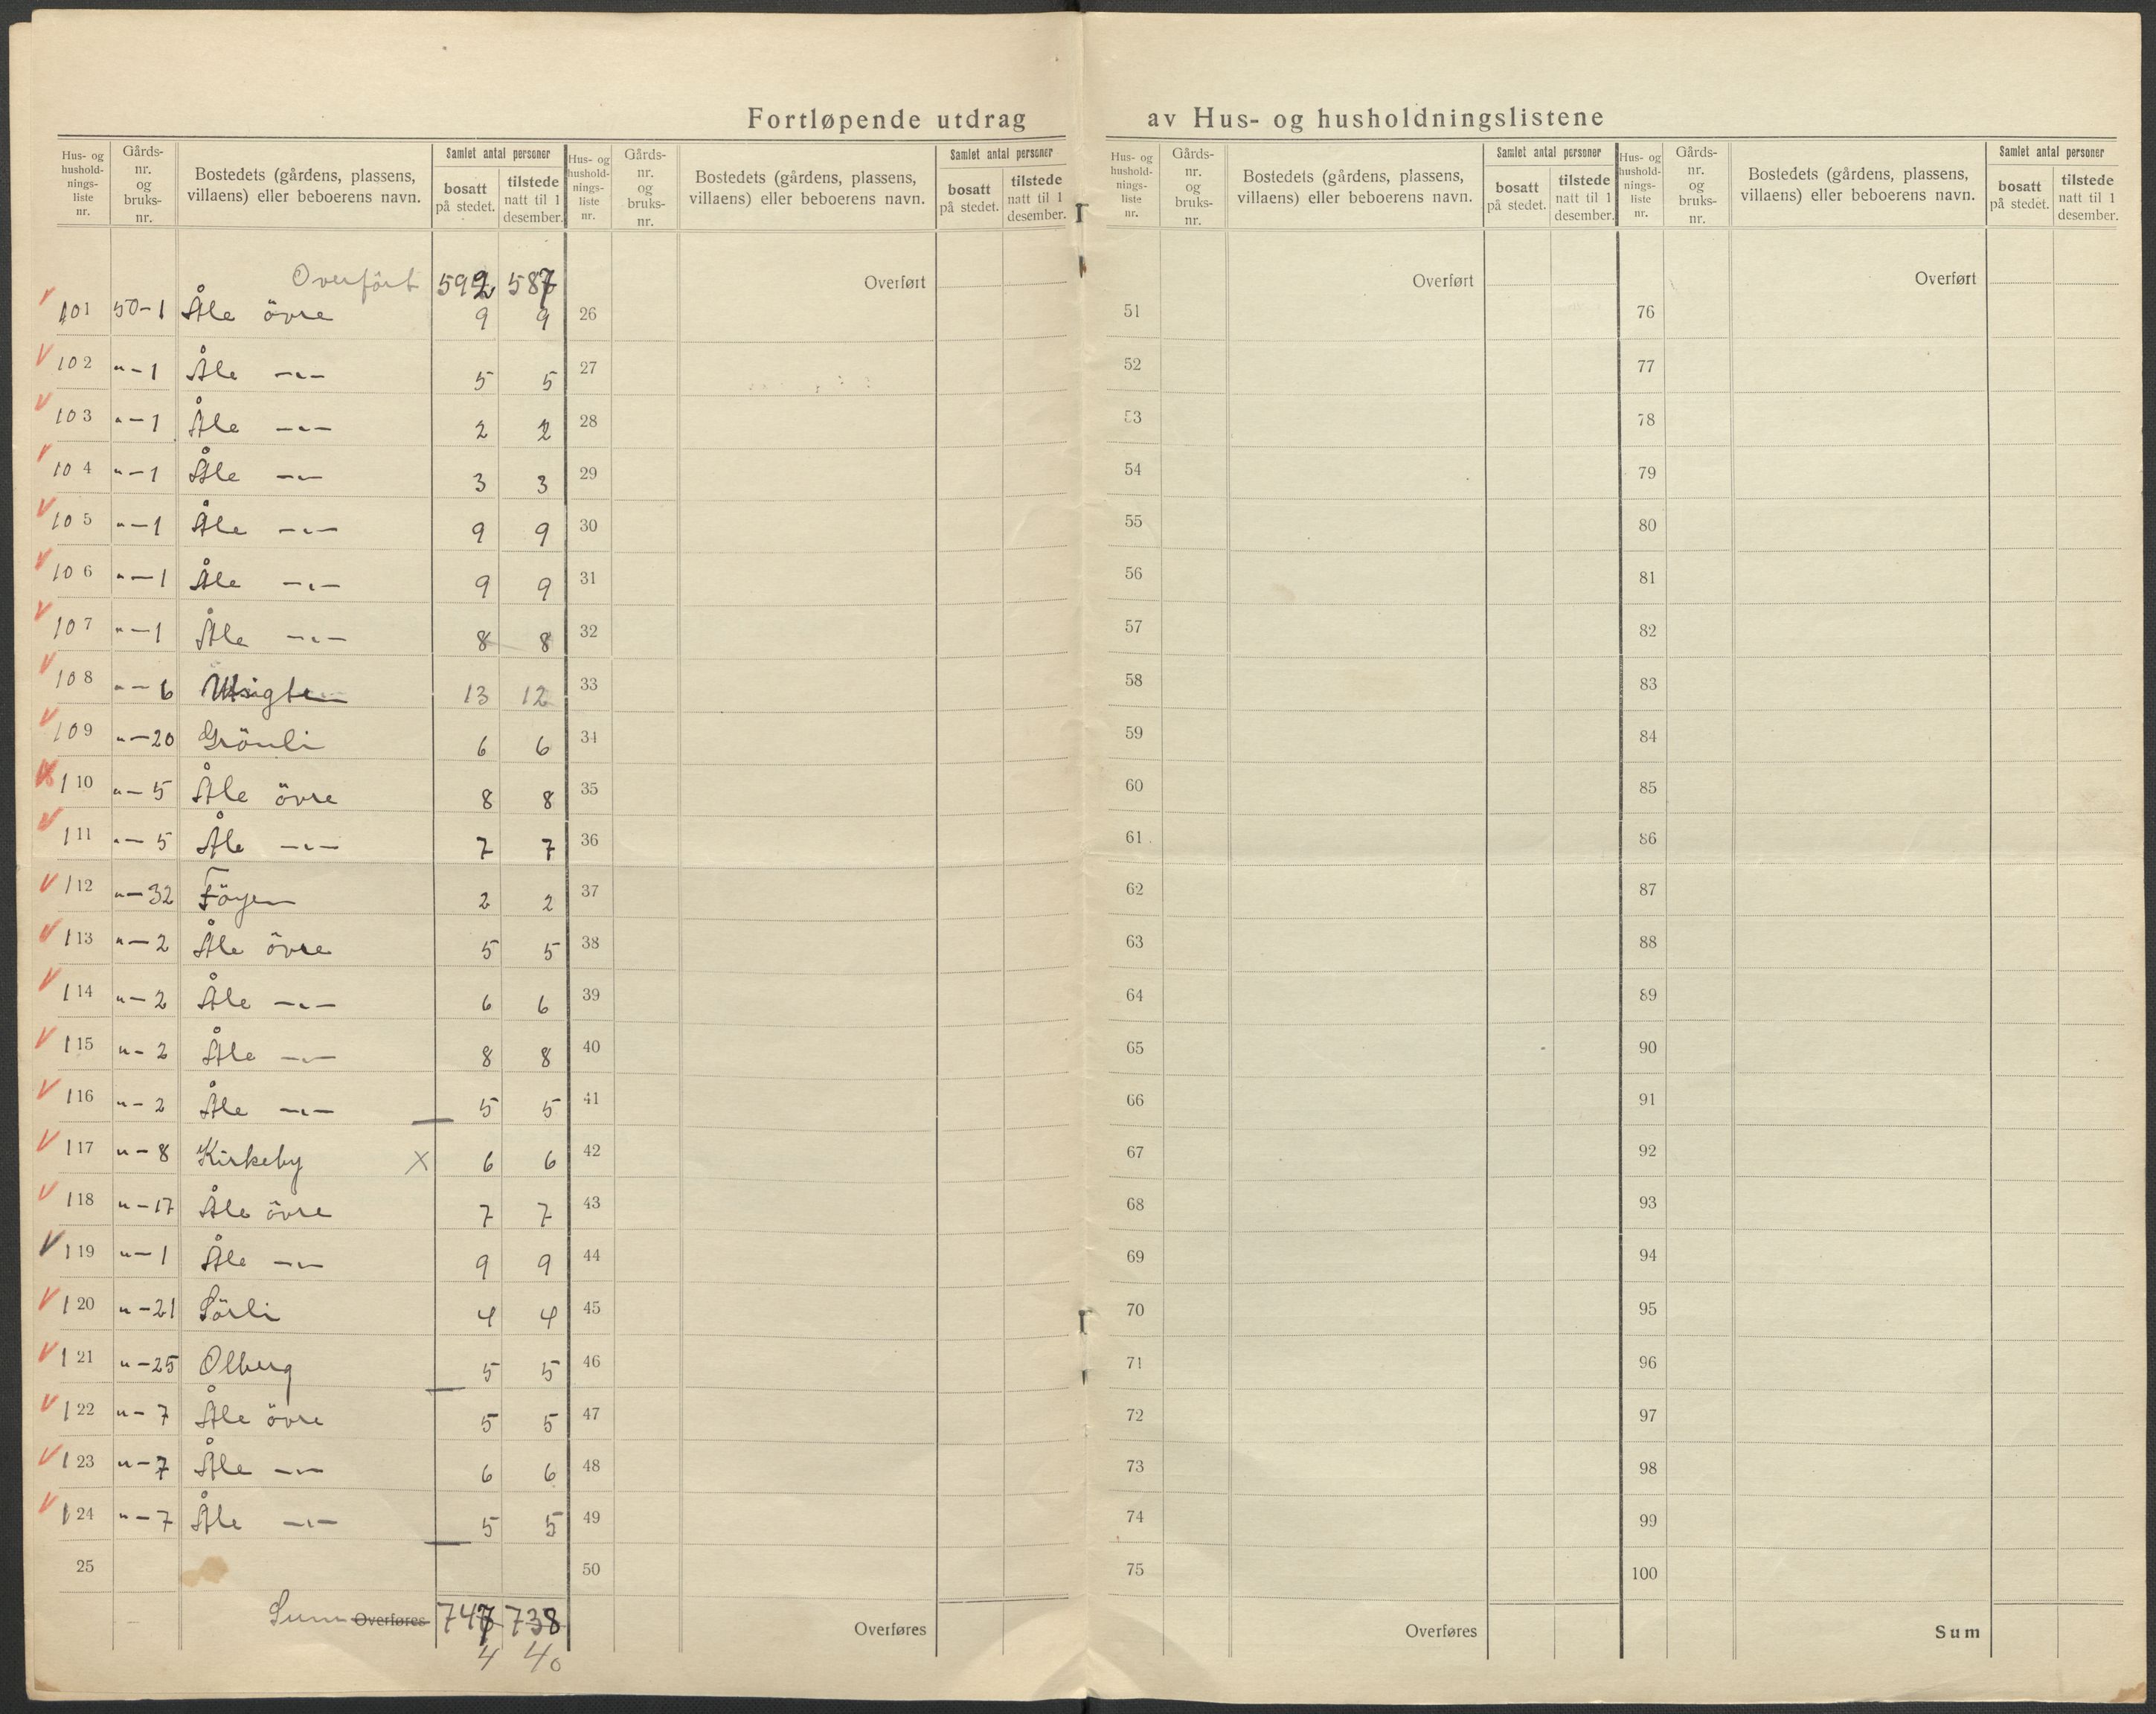 Fortløpende utdrag av Hus- og husholdningslistene
Hus- og hushold-nings-liste nr. Gårds-nr. og bruks-nr. Bostedets (gårdens, plassens, villaens) eller beboerens navn. Samlet antal personer bosatt på stedet. tilstede natt til 1 desember.
Overført 592 587
101 50-1 Åle övre 9 9
102 "-1 Åle -"- 5 5
103 "-1 Åle -"- 2 2
104 "-1 Åle -"- 3 3
105 "-1 Åle -"- 9 9
106 "-1 Åle -"- 9 9
107 "-1 Åle -"- 8 8
108 "-6 Utsigten 13 12
109 "-20 Grönli 6 6
110 "-5 Åle övre 8 8
111 "-5 Åle -"- 7 7
112 "-32 Föyen 2 2
113 "-2 Åle övre 5 5
114 "-2 Åle -"- 6 6
115 "-2 Åle -"- 8 8
116 "-2 Åle -"- 5 5
117 "-8 Kirkeby X 6 6
118 "-17 Åle övre 7 7
119 "-1 Åle -"- 9 9
120 "-21 Sörli 4 4
121 "-25 Olberg 5 5
122 "-7 Åle övre 5 5
123 "-7 Åle -"- 6 6
124 "-7 Åle -"- 5 5
25
Sum Overføres 747 738
4 40
Hus- og hushold-nings-liste nr. Gårds-nr. og bruks-nr. Bostedets (gårdens, plassens, villaens) eller beboerens navn. Samlet antal personer bosatt på stedet. tilstede natt til 1 desember.
Overført
26
27
28
29
30
31
32
33
34
35
36
37
38
39
40
41
42
43
44
45
46
47
48
49
50
Overføres
Hus- og hushold-nings-liste nr. Gårds-nr. og bruks-nr. Bostedets (gårdens, plassens, villaens) eller beboerens navn. Samlet antal personer bosatt på stedet. tilstede natt til 1 desember.
Overført
51
52
53
54
55
56
57
58
59
60
61
62
63
64
65
66
67
68
69
70
71
72
73
74
75
Overføres
Hus- og hushold-nings-liste nr. Gårds-nr. og bruks-nr. Bostedets (gårdens, plassens, villaens) eller beboerens navn. Samlet antal personer bosatt på stedet. tilstede natt til 1 desember.
Overført
76
77
78
79
80
81
82
83
84
85
86
87
88
89
90
91
92
93
94
95
96
97
98
99
100
Sum